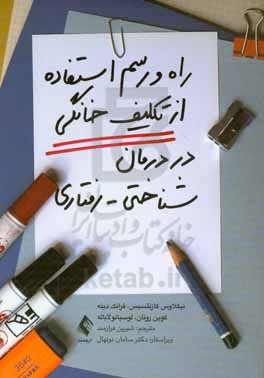 راه و رسم استفاده
از تکلیف خانگی
در درمان
شناختی - رفتاری
نیکلاوس کازنتسیس، فرانک دینه
کوین رونان، لوسیانو لاباته
مترجم: شیرین فرازمند
ویراستار: دکتر سامان نونهال
خانه کتاب و ادبیات ایران
ketab.ir